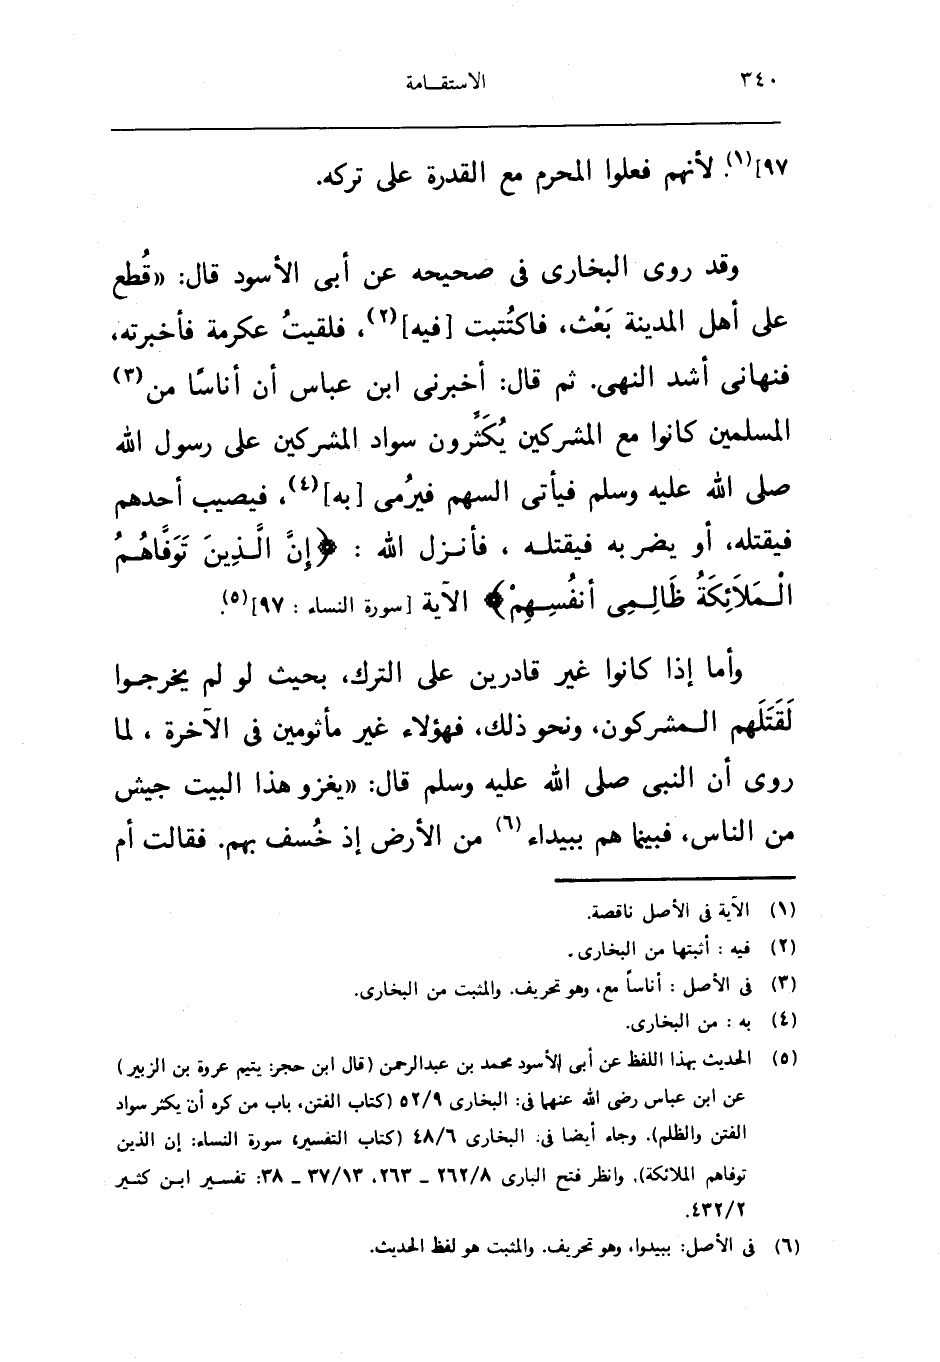 ٣٤٠ الاستقـامة
٩٧](١). لأنهم فعلوا المحرم مع القدرة على تركه.
وقد روى البخارى فى صحيحه عن أبى الأسود قال: «قُطع
على أهل المدينة بَعْث، فاكتُتبت [فيه](٢)، فلقيتُ عكرمة فأخبرته،
فنهانى أشد النهى. ثم قال: أخبرنى ابن عباس أن أناسًا من(٣)
المسلمين كانوا مع المشركين يُكَثِّرون سواد المشركين على رسول الله
صلى الله عليه وسلم فيأتى السهم فيرُمى [به](٤)، فيصيب أحدهم
فيقتله، أو يضربه فيقتلـه ، فأنـزل الله : ﴿إِنَّ الَّـذِينَ تَوَفَّاهُـمُ
الْـمَلاَئِكَةُ ظَالِـمِى أنفُسِـهِمْ﴾ الآية [سورة النساء : ٩٧](٥).
وأما إذا كانوا غير قادرين على الترك، بحيث لو لم يخرجـوا
لَقَتَلَهم الـمشركون، ونحو ذلك، فهؤلاء غير مأثومين فى الآخرة ، لما
روى أن النبى صلى الله عليه وسلم قال: «يغزو هذا البيت جيش
من الناس، فبينما هم ببيداء(٦) من الأرض إذ خُسف بهم. فقالت أم
(١) الآية فى الأصل ناقصة.
(٢) فيه : أثبتها من البخارى.
(٣) فى الأصل : أناساً مع، وهو تحريف. والمثبت من البخارى.
(٤) به : من البخارى.
(٥) الحديث بهذا اللفظ عن أبى الأسود محمد بن عبدالرحمن (قال ابن حجر: يتيم عروة بن الزبير)
عن ابن عباس رضى الله عنهما فى: البخارى ٥٢/٩ (كتاب الفتن، باب من كره أن يكثر سواد
الفتن والظلم). وجاء أيضا فى: البخارى ٤٨/٦ (كتاب التفسير، سورة النساء: إن الذين
توفاهم الملائكة). وانظر فتح البارى ٢٦٢/٨ ـ ٢٦٣، ٣٧/١٣ ـ ٣٨: تفسـير ابـن كثـير
٤٣٢/٢.
(٦) فى الأصل: ببيدوا، وهو تحريف. والمثبت هو لفظ الحديث.